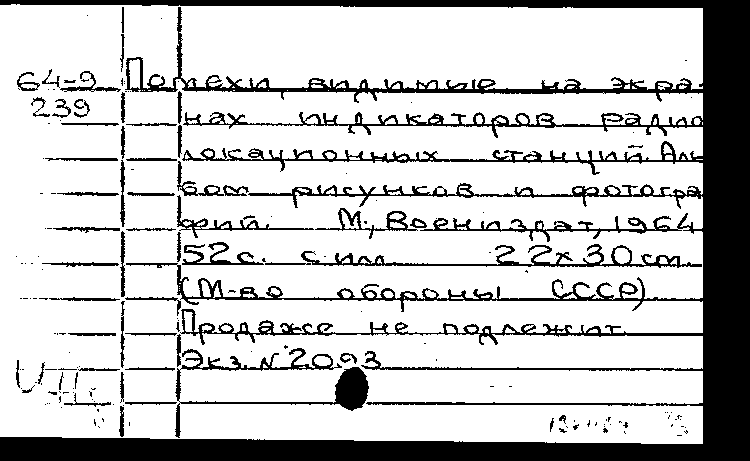 64-9 Помехи, видимые на экра-
239 нах индикаторов радио
локационных станций. Аль
бом рисунков и фотогра
фий. М., Воениздат, 1964
52 с. с илл. 22х30 см.
(М-во обороны СССР)
Продаже не подлежит.
Экз. № 2093